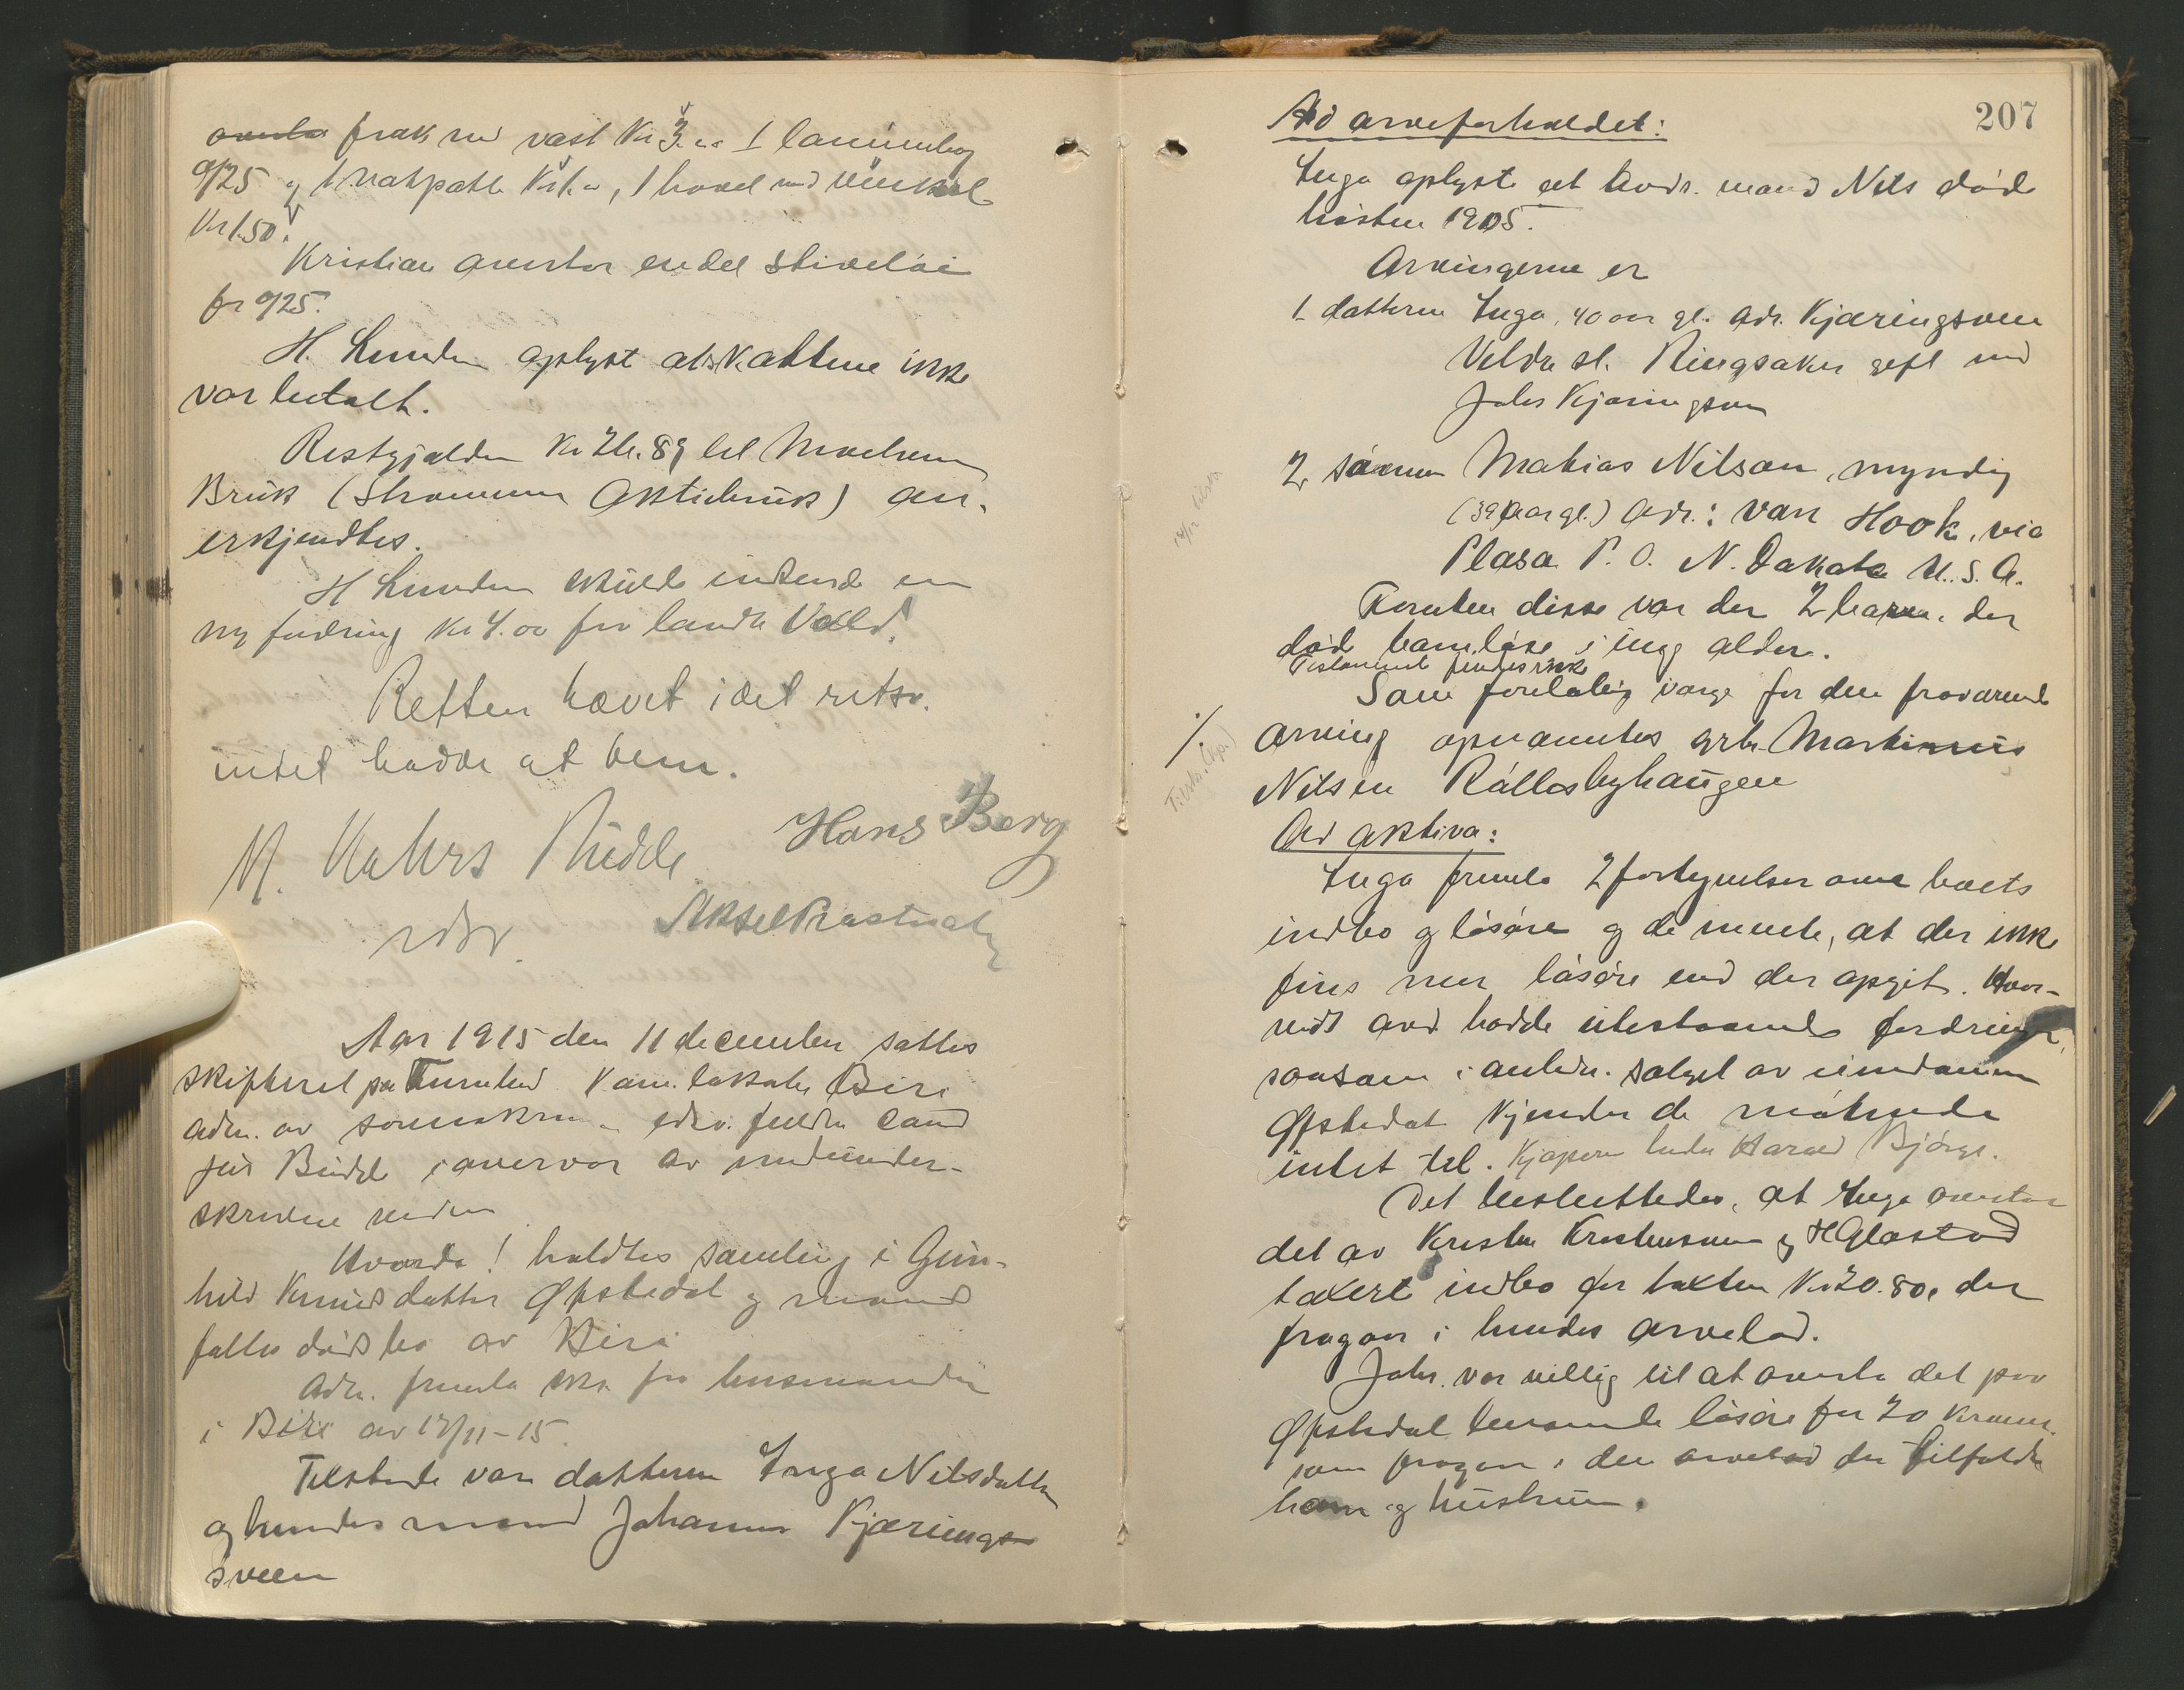 frak med vest Kr 3.00 1
0/25 og 1 kr 1.00, 1 hövel med vinkel
Kr 1.50.
Kristian overtar endel
for 0/25.
H. Lunden oplyste at skattene ikke
var betalt.
Restgjælden Kr 26.89 til Moelven
Bruk (Strommen Aktiebruk) an-
erkjendtes.
H Lunden skulde indsende en
ny fordring Kr 4.00 fra
Retten hævet idet retsv.
intet hadde at bem.
Hans Berg
Aksel
Aar 1915 den 11 december sattes
skifteret paa kom. lokale Biri
adm. av edsv. fuldm. cand
jur i overvær av undertegnede
vidner
Hvorda! holdtes samling i Gun-
hild Knudsdatter Øpstedal og mand
fælles dødsbo av Biri
Adm. fremla skr. fra lensmanden
i Biri av 17/11-15.
Tilstede var datteren Inga Nilsdatter
og hendes mand Johannes Kjærings-
sveen
207
Ad arveforholdet:
Inga oplyste at avds. mand Nils döde
hösten 1905.
Arvingerne er
1 datteren Inga, 40 aar gl. adr. Kjæringsveen
Veldre st. Ringsaker gift med
Johs Kjæringsveen
2 sönnen Matias Nilson, myndig
(39 aar gl.) adr.: Van Hook, via
Plasa P. O. N. Dakota U. S. A.
Foruten disse var der 2 barn, der
död barnlöse i ung alder.
Testament findes ikke
Som foreløbig værge for den fraværende
arving opnævntes grbr. Martinius
Nilsen Rållesbyhaugen
Ad aktiva:
Inga fremla 2 fortegnelser over boets
indbo og lösöre og de mente, at der ikke
fins mer lösöre end der opgit. Hvor-
vidt avd. hadde utestaaende fordringer,
saasom i anledn. salget av eiendommen
Øpstedal kjender de møtende
intet til. Kjøperen heder Harald Bjørge.
Det besluttedes, at Inga overtar
det av Kristen Kristensen og H Glæstad
takert indbo for taksten Kr 20.80, der
fragaar i hendes arvelod.
Johs. var villig til at overta det paa
Øpstedal beroende lösöre for 20 kroner,
som fragaar i den arvelod der tilfalder
ham og hustru.